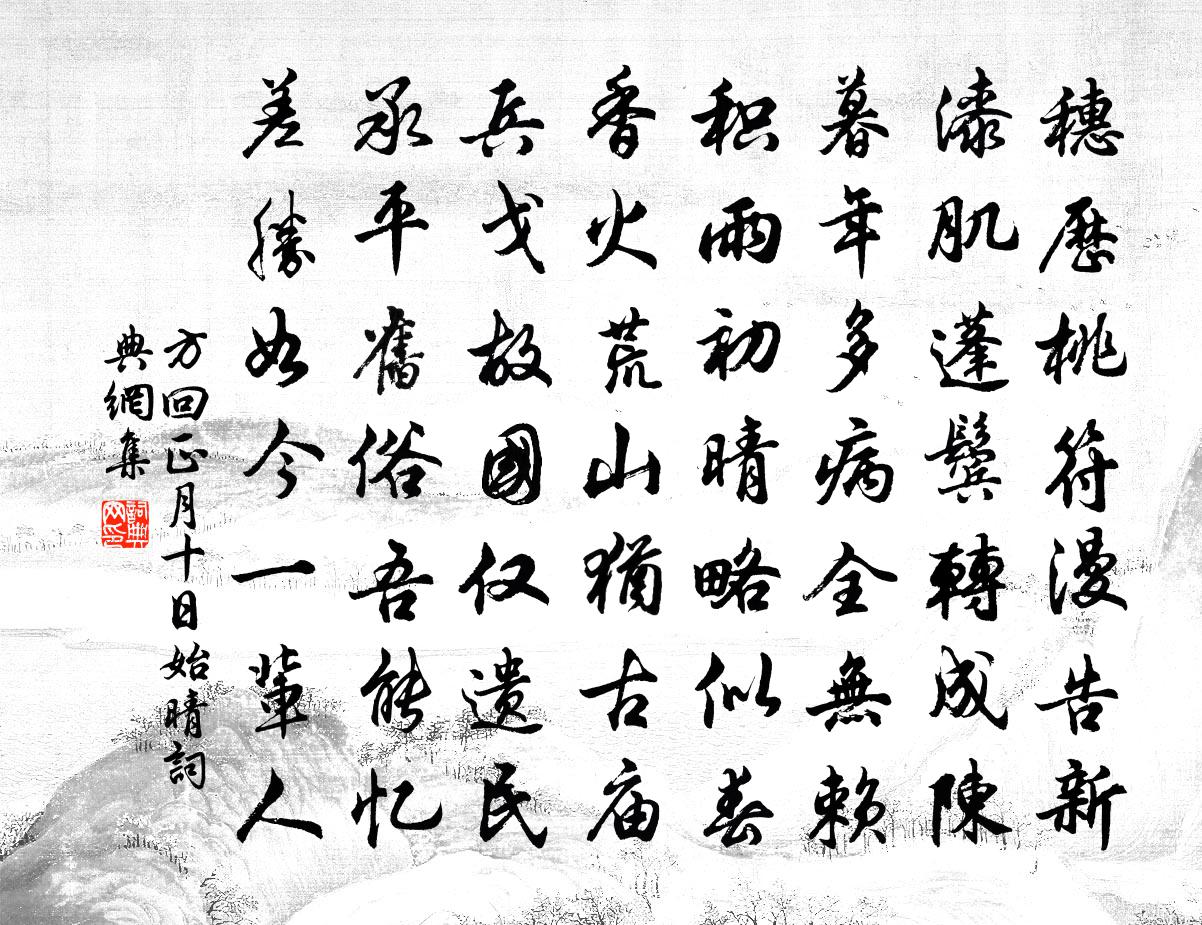 穗歷桃符漫告新
漆肌蓬鬓轉成陳
暮年多病全無賴
积雨初晴略似春
香火荒山猶古庙
兵戈故國仅遗民
承平舊俗吾能忆
差勝如今一輩人
方回正月十日始晴詞
典網集
詞典
网印